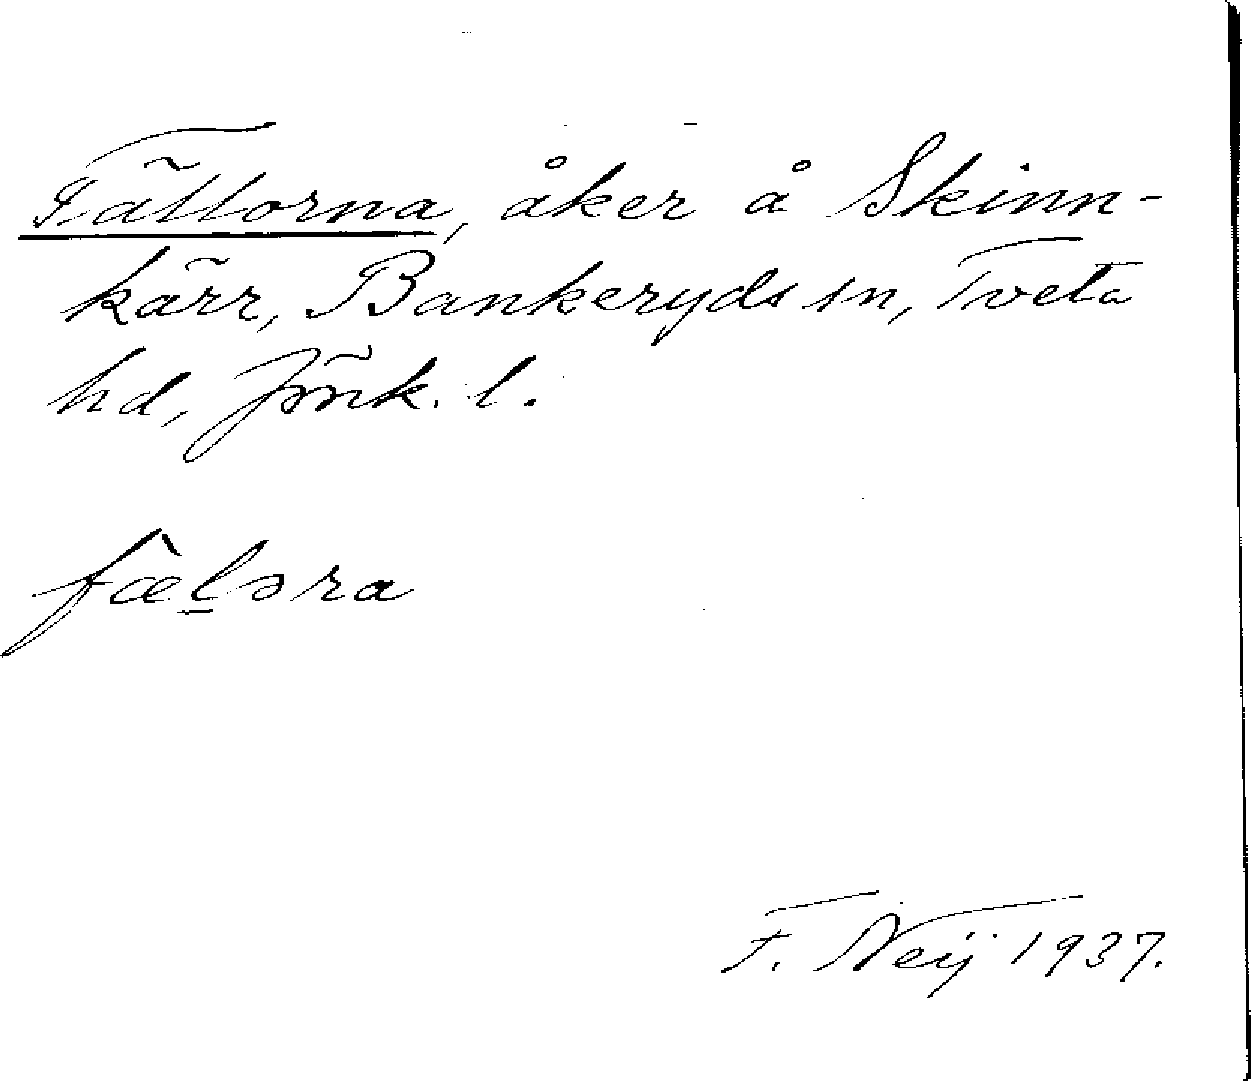 Fällorna, åker å Skinn-
kärr, Bankeryds sn, Tveta
hd, Jönk. l.
fæḻəra
F. Neij 1937.